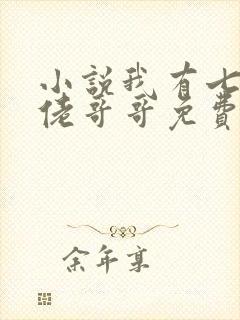 小說我有七
佬哥哥免費
余年京